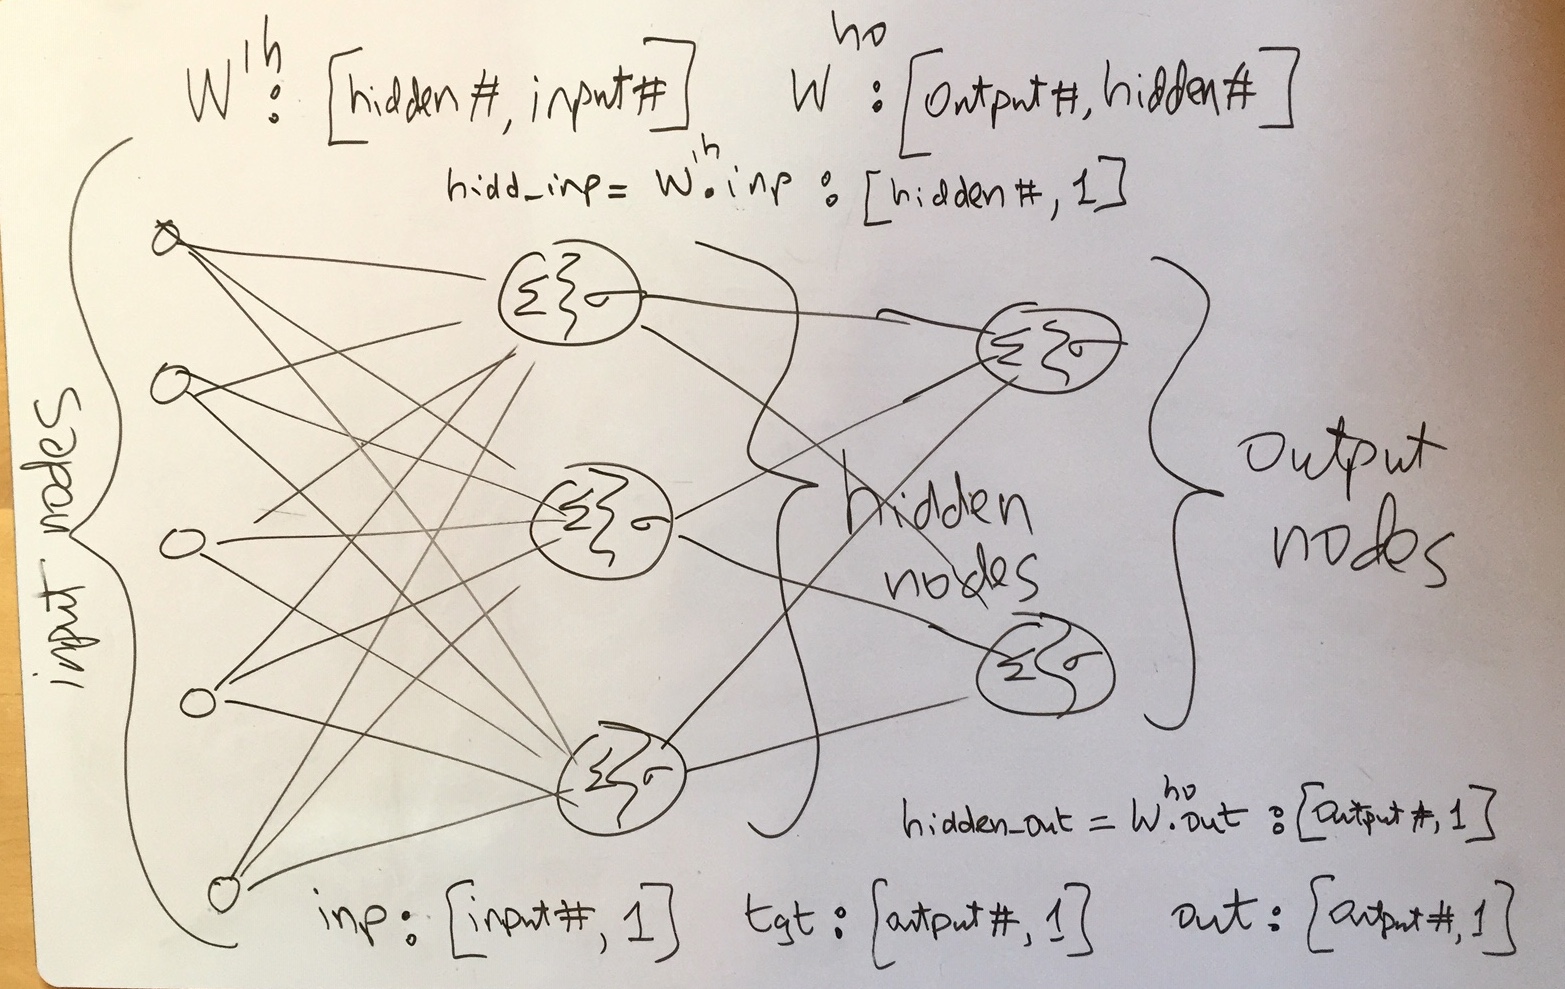 W^ih : [hidden #, input #] W^ho : [output #, hidden #]
hidd_inp = W^ih . inp : [hidden #, 1]
input nodes
Σ σ
Σ σ
Σ σ
hidden
nodes
Σ σ
Σ σ
output
nodes
hidden_out = W^ho . out : [output #, 1]
inp : [input #, 1] tgt : [output #, 1] out : [output #, 1]